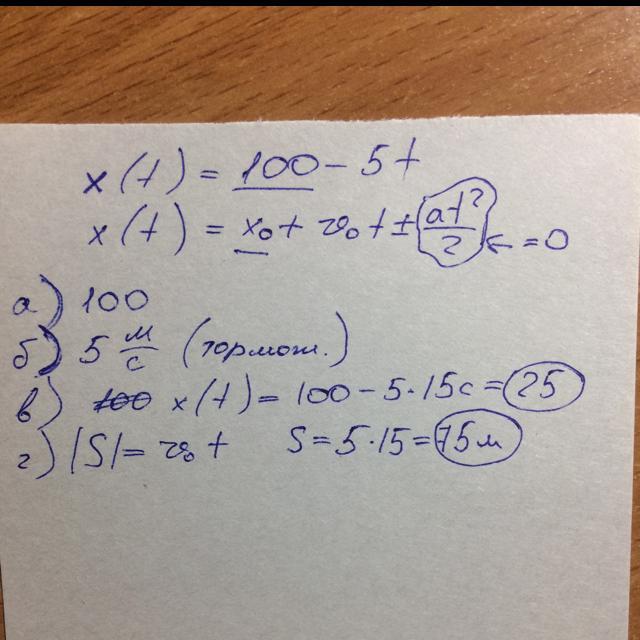 x(t) = 100 - 5t
x(t) = x₀ + v₀t ± at²/2 ← = 0
а) 100
б) 5 м/с (тормож.)
в) 100 x(t) = 100 - 5·15с = 25
г) |S| = v₀t S = 5·15 = 75м